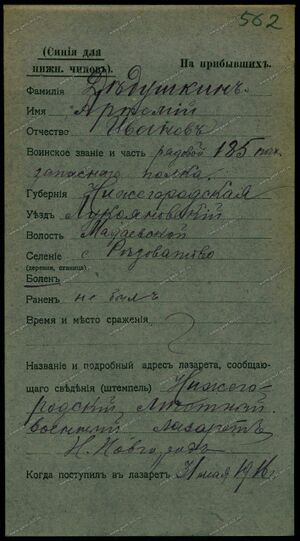 562
(Синія для
нижн. чиновъ).
На прибывшихъ.
Фамилія Дѣдушкинъ
Имя Артемій
Отчество Ивановъ
Воинское званіе и часть рядовой 185 пѣх.
запаснаго полка
Губернія Нижегородская
Уѣздъ Лукояновскій
Волость Мадаевской
Селеніе с
(деревня, станица)
Боленъ
Раненъ не былъ
Время и мѣсто сраженія
Названіе и подробный адресъ лазарета, сообщаю-
щаго свѣдѣнія (штемпель) Нижего-
родскій мѣстный
военный лазаретъ
Н. Новгородъ
Когда поступилъ въ лазаретъ 31 мая 1916 г.